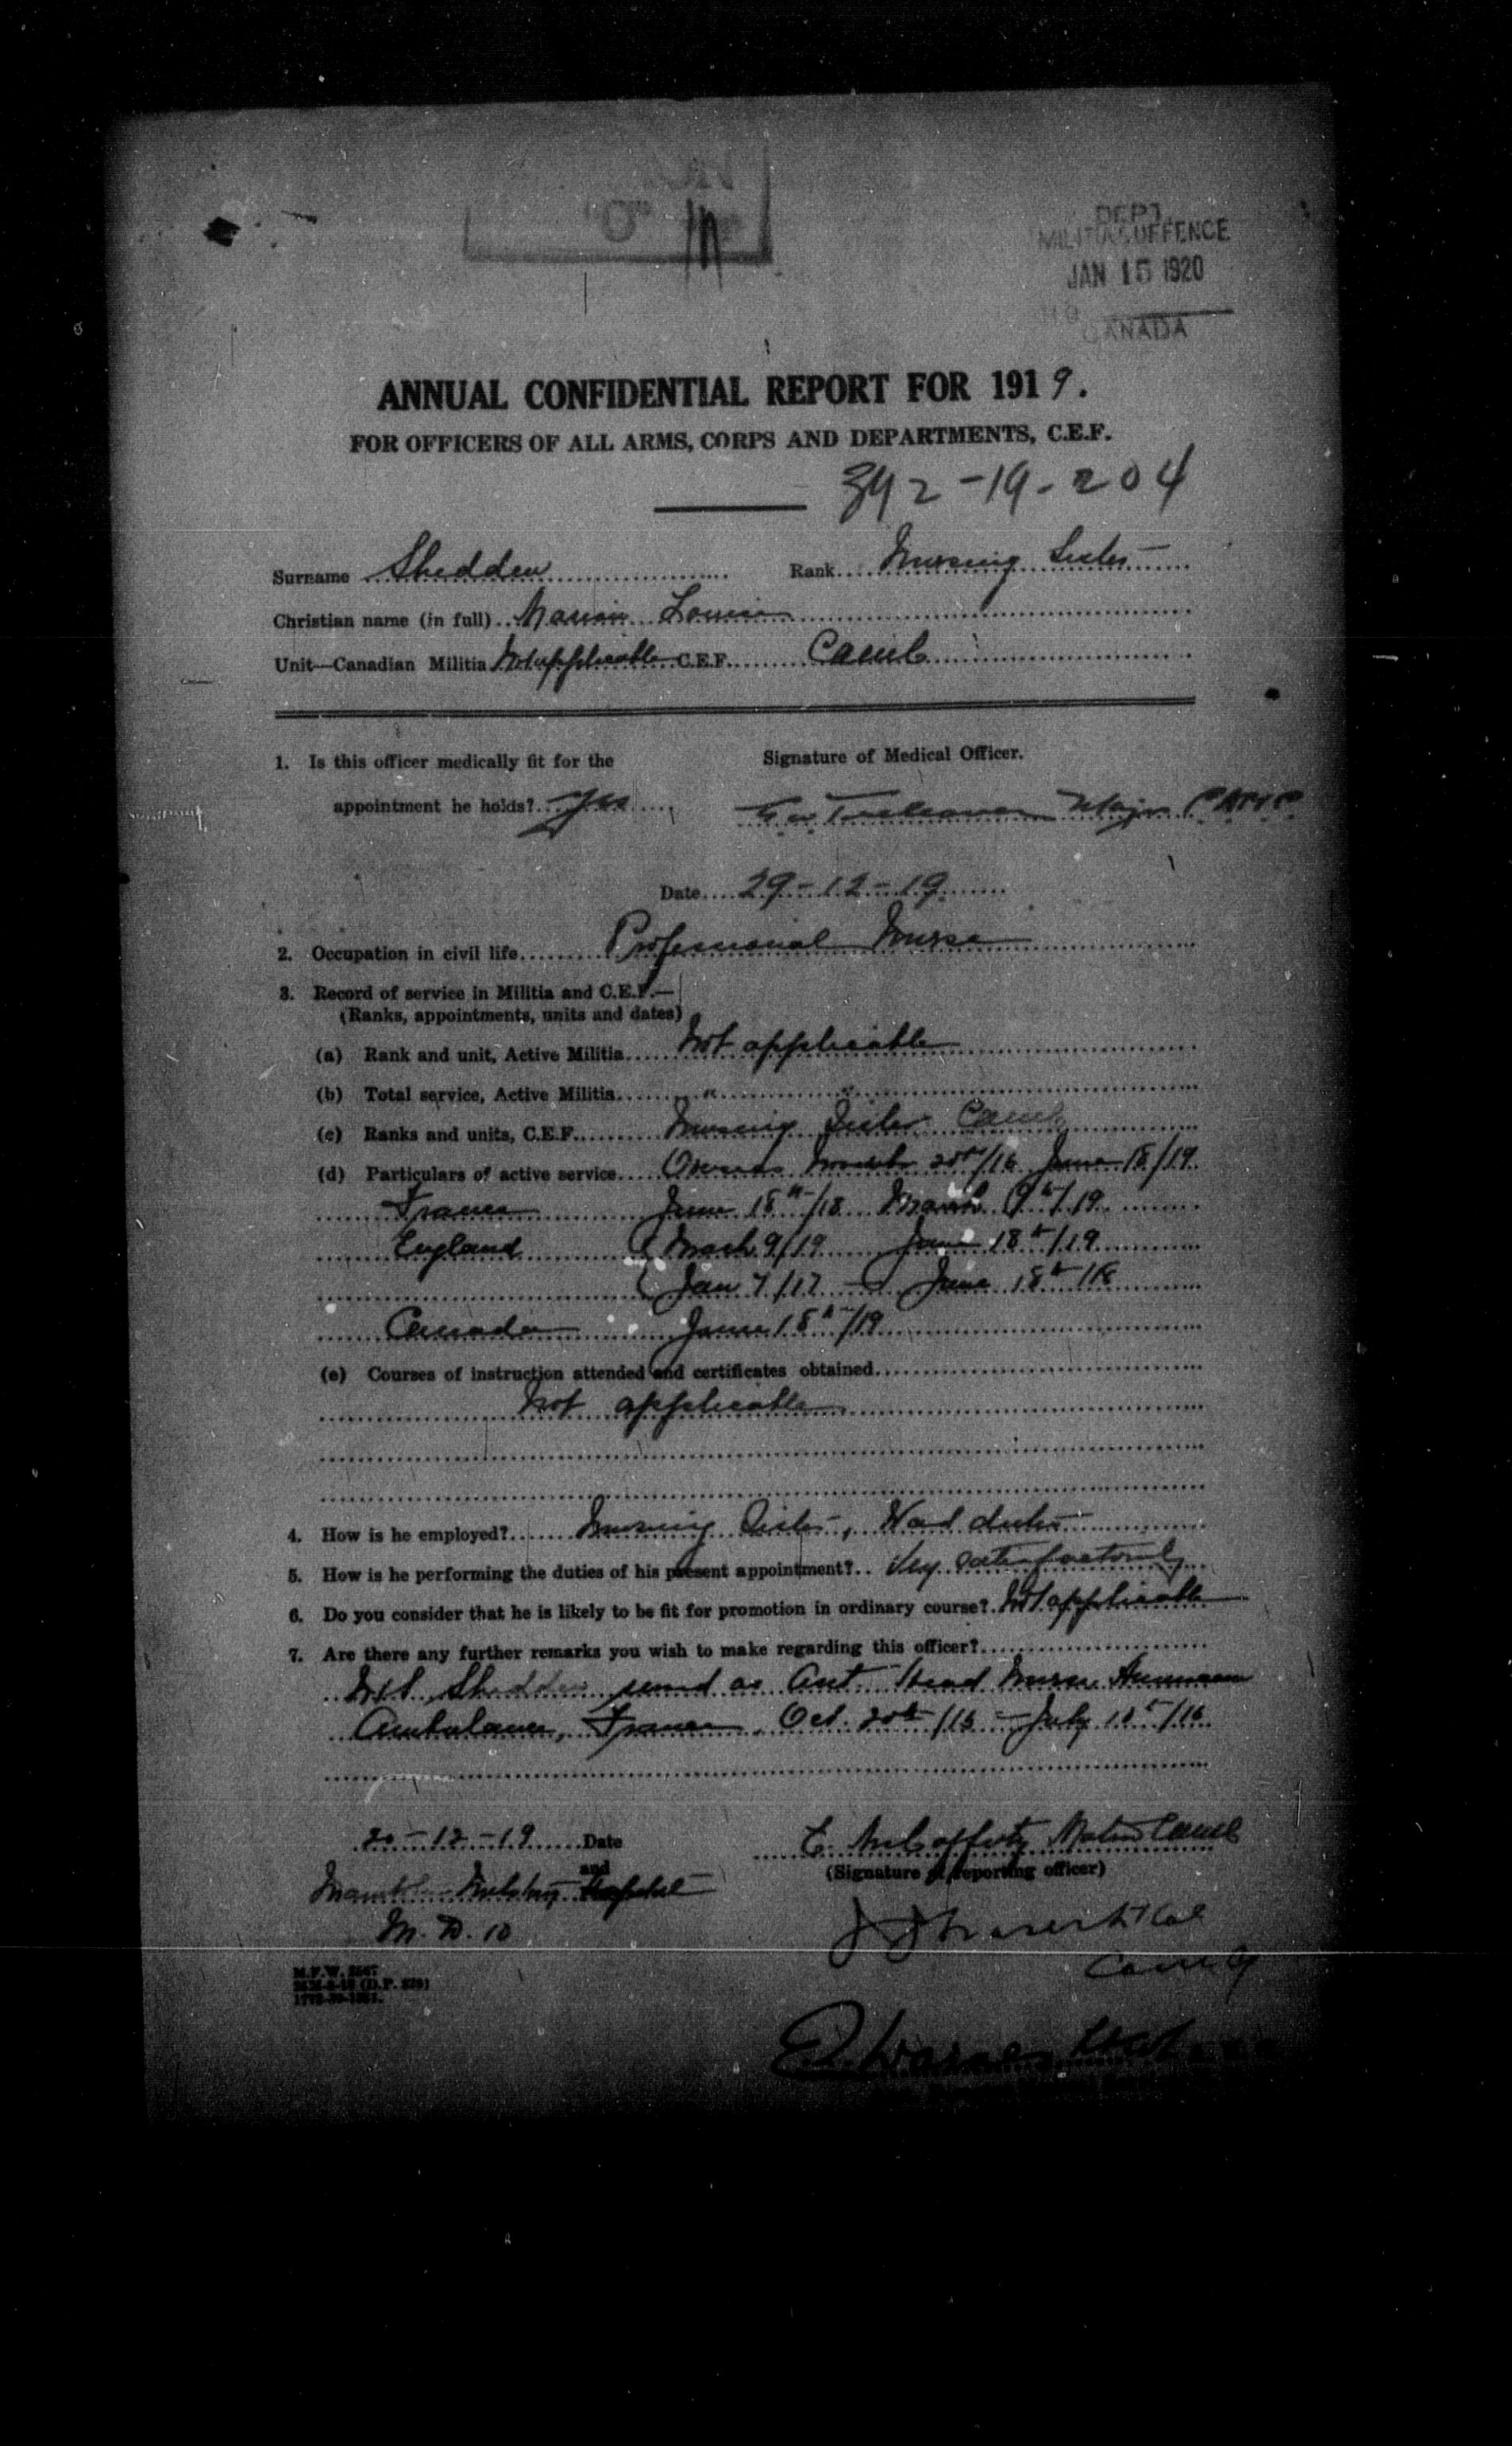 "O"
DEPT.
MILITIA & DEFENCE
JAN 15 1920
CANADA
ANNUAL CONFIDENTIAL REPORT FOR 1919.
FOR OFFICERS OF ALL ARMS, CORPS AND DEPARTMENTS, C.E.F.
392-19-204
Surname Shedden Rank Nursing Sister
Christian name (in full) Marion Louise
Unit—Canadian Militia Not applicable C.E.F. CAMC
1. Is this officer medically fit for the Signature of Medical Officer.
appointment he holds? Yes Major CAMC
Date 29-12-19
2. Occupation in civil life Professional Nurse
3. Record of service in Militia and C.E.F.—
(Ranks, appointments, units and dates)
(a) Rank and unit, Active Militia Not applicable
(b) Total service, Active Militia " "
(c) Ranks and units, C.E.F. Nursing Sister CAMC
(d) Particulars of active service Overseas June 18/19
France June 18th/18 March 9th/19
England March 9/19 June 18th/19
Jan 7/17 - June 18th/18
Canada June 18th/19
(e) Courses of instruction attended and certificates obtained
Not applicable
4. How is he employed? Nursing Sister, Ward duties
5. How is he performing the duties of his present appointment? Very satisfactorily
6. Do you consider that he is likely to be fit for promotion in ordinary course? Not applicable
7. Are there any further remarks you wish to make regarding this officer?
N/S Shedden served as Asst. Head Nurse American
Ambulance, France, Oct. 20th/15 - July 18th/16
20-12-19 Date E. McCafferty Matron CAMC
and (Signature of reporting officer)
Military Hospital
M.D. 10
M.F.W.